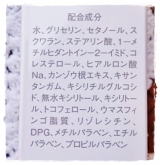 配合成分
水、グリセリン、セタノール、ス
クワラン、ステアリン酸、1－メ
チルヒダントイン－2－イミド、コ
レステロール、ヒアルロン酸
Na、カンゾウ根エキス、キサン
タンガム、キシリチルグルコシ
ド、無水キシリトール、キシリ
トール、トコフェロール、ウマスフィ
ンゴ脂質、リゾレシチン、
DPG、メチルパラベン、エチル
パラベン、プロピルパラベン